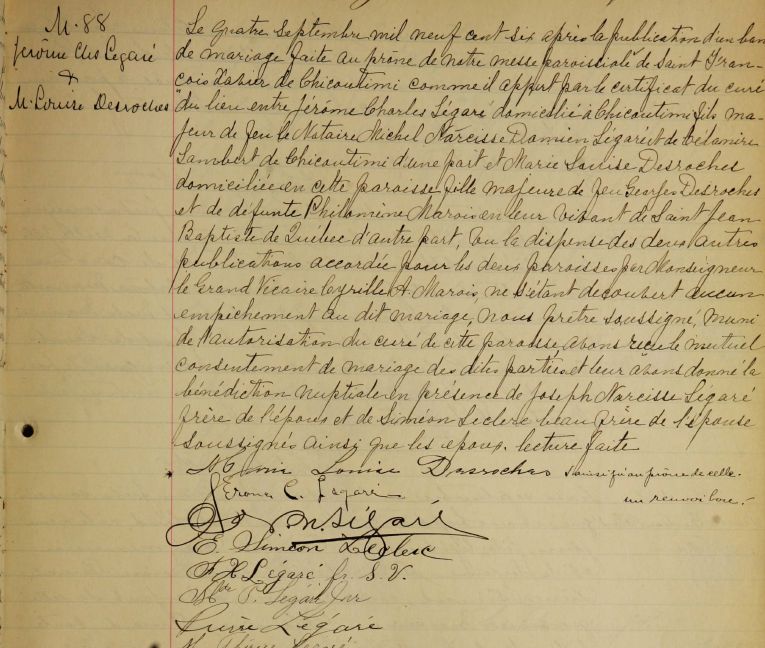 M. 88
Jérôme Chs Légaré
&
M. Louise Desroches
Le quatre septembre mil neuf cent six après la publication d'un ban
de mariage faite au prône de notre messe paroissiale* de Saint Fran-
çois Xavier de Chicoutimi comme il appert par le certificat du curé
du lieu entre Jérôme Charles Légaré domicilié à Chicoutimi fils ma-
jeur de feu le Notaire Michel Narcisse Damien Légaré et de Célanire
Lambert de Chicoutimi d'une part et Marie Louise Desroches
domiciliée en cette paroisse fille majeure de feu Georges Desroches
et de défunte Philomène Marois en leur vivant de Saint Jean
Baptiste de Québec d'autre part, vu la dispense des deux autres
publications accordée pour les deux paroisses par Monseigneur
le Grand Vicaire Cyrille A. Marois, ne s'étant découvert aucun
empêchement au dit mariage, nous prêtre soussigné, muni
de l'autorisation du curé de cette paroisse, avons reçu le mutuel
consentement de mariage des dites parties et leur avons donné la
bénédiction nuptiale en présence de Joseph Narcisse Légaré
frère de l'époux et de Siméon Leclerc beau frère de l'épouse
soussignés ainsi que les époux. lecture faite
Marie Louise Desroches
* ainsi qu'au prône de celle.
Jérôme C. Légaré
un renvoi bon.
N. Légaré
E. Siméon Leclerc
F X Légaré
Légaré
Légaré